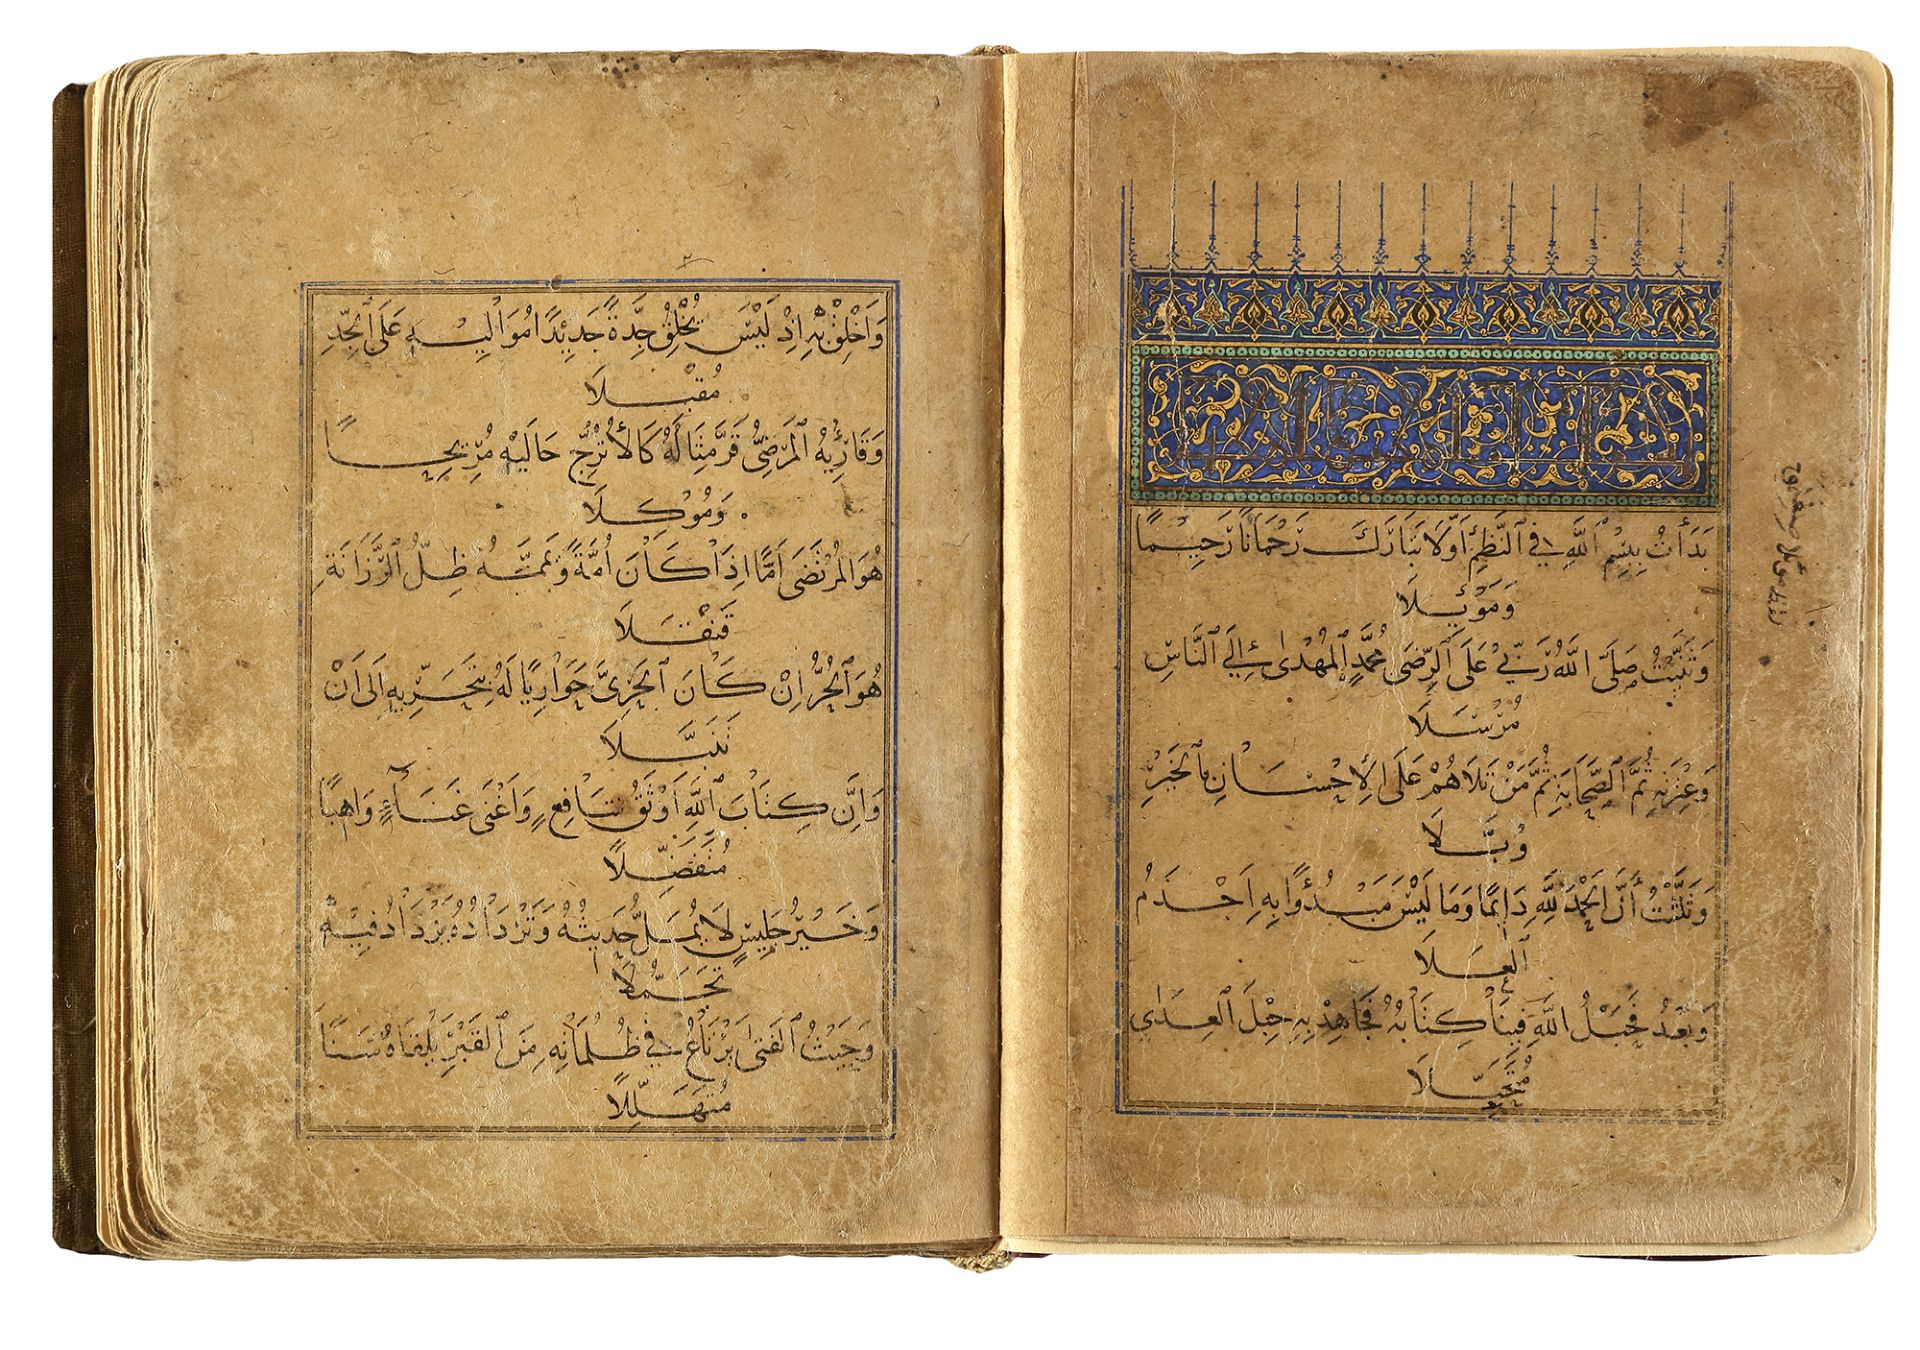 بَدَأْتُ بِبِسْمِ اللَّهِ فِي النَّظْمِ أَوَّلَا تَبَارَكَ رَحْمَانًا رَحِيمًا
وَمَوْئِلَا
وَثَنَّيْتُ صَلَّى اللَّهُ رَبِّي عَلَى الرِّضَى مُحَمَّدٍ الْمُهْدَىٰ إِلَى النَّاسِ
مُرْسَلَا
وَعِتْرَتِهِ ثُمَّ الصَّحَابَةِ ثُمَّ مَنْ تَلَاهُمْ عَلَى الْإِحْسَانِ بِالْخَيْرِ
وُبَّلَا
وَثَلَّثْتُ أَنَّ الْحَمْدَ لِلَّهِ دَائِمًا وَمَا لَيْسَ مَبْدُوًّا بِهِ أَجْذَمُ
الْعَلَا
وَبَعْدُ فَحَبْلُ اللَّهِ فِينَا كِتَابُهُ فَجَاهِدْ بِهِ حِبْلَ الْعِدَىٰ
مُتَحَبِّلَا
وَأَخْلِقْ بِهِ إِذْ لَيْسَ يَخْلُقُ جِدَّةً جَدِيدًا مُوَالِيهِ عَلَى الْجِدِّ
مُقْبِلَا
وَقَارِئُهُ الْمَرْضِيُّ قَرَّ مِثَالُهُ كَالْأُتْرُجِّ حَالَيْهِ مُرِيحًا
وَمُوْكِلَا
هُوَ الْمُرْتَضَى أَمًّا إِذَا كَانَ أُمَّةً وَيَمَّمَهُ ظِلُّ الرَّزَانَةِ
قَنْقَلَا
هُوَ الْحُرُّ إِنْ كَانَ الْحَرِيَّ حَوَارِيًّا لَهُ بِتَحَرِّيهِ إِلَى أَنْ
تَنَبَّلَا
وَإِنَّ كِتَابَ اللَّهِ أَوْثَقُ شَافِعٍ وَأَغْنَى غَنَاءٍ وَاهِبًا
مُتَفَضِّلًا
وَخَيْرُ جَلِيسٍ لَا يُمَلُّ حَدِيثُهُ وَتَرْدَادُهُ يَزْدَادُ فِيهِ
تَجَمُّلَا
وَحَيْثُ الْفَتَىٰ يَرْتَاعُ فِي ظُلُمَاتِهِ مِنَ الْقَبْرِ يَلْقَاهُ سَنًا
مُتَهَلِّلًا